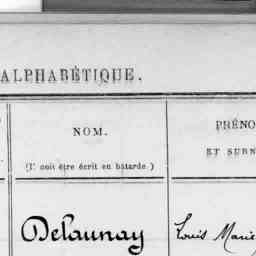 ALPHABÉTIQUE.
NOM.
(Il doit être écrit en bâtarde.)
PRÉNO
ET SURN
Delaunay
Louis Marie